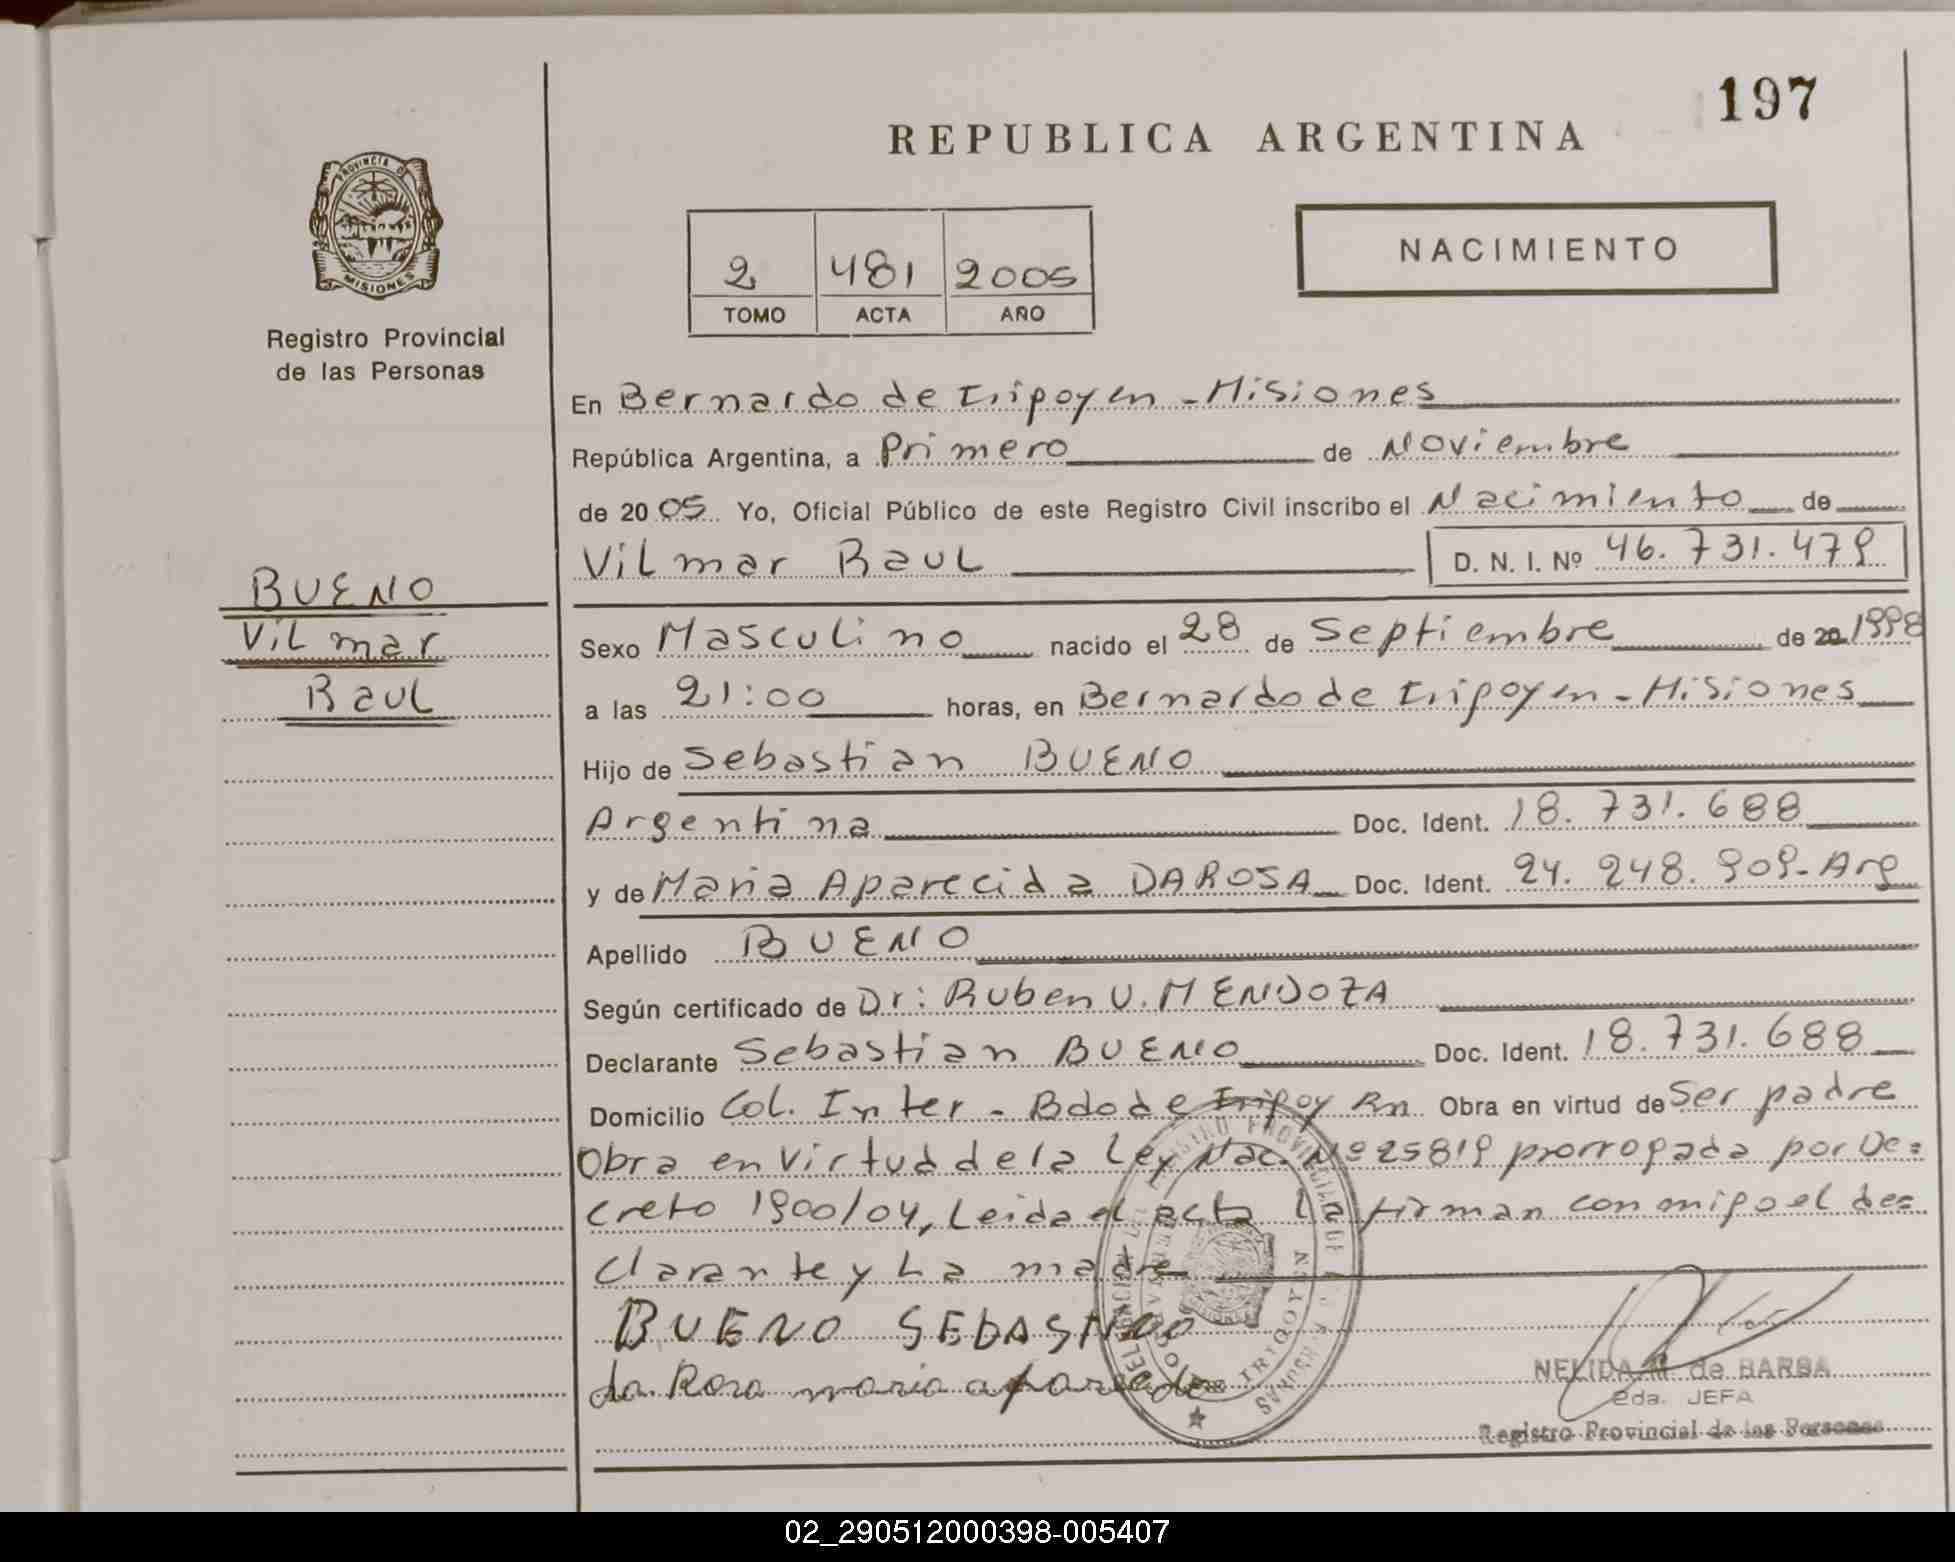 197
REPUBLICA ARGENTINA
PROVINCIA DE
MISIONES
Registro Provincial
de las Personas
2 481 2005
TOMO ACTA AÑO
NACIMIENTO
En Bernardo de Irigoyen - Misiones
República Argentina, a Primero de Noviembre
de 2005 Yo, Oficial Público de este Registro Civil inscribo el Nacimiento de
Vilmar Raul D. N. I. Nº 46.731.479
BUENO
Vilmar
Raul
Sexo Masculino nacido el 28 de Septiembre de 20 1998
a las 21:00 horas, en Bernardo de Irigoyen - Misiones
Hijo de Sebastian BUENO
Argentina Doc. Ident. 18.731.688
y de Maria Aparecida DAROSA Doc. Ident. 24.248.909-Arg
Apellido BUENO
Según certificado de Dr: Ruben U. MENDOZA
Declarante Sebastian BUENO Doc. Ident. 18.731.688
Domicilio Col. Inter - Bdo de Irigoyen Obra en virtud de Ser padre
Obra en Virtud de la Ley Nac. Nº 25819 prorrogada por De=
creto 1900/04, Leida el acta la firman conmigo el de=
clarante y La madre
BUENO SEBASTIAO
da Rosa maria aparecida
NELIDA M. de BARBA
2da. JEFA
Registro Provincial de las Personas
02_290512000398-005407